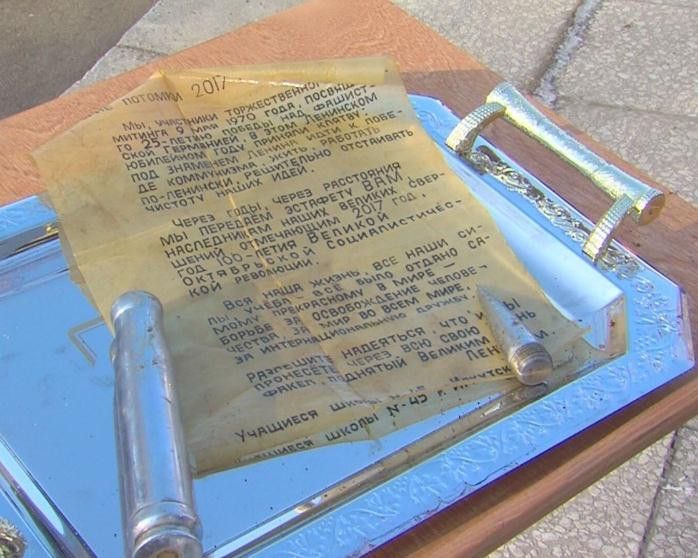 потомки 2017
Мы, участники торжественного
митинга 9 мая 1970 года, посвящ
го 25-летию победы над фашист-
ской Германией в этом Ленинском
юбилейном году приняли клятву
под знаменем Ленина идти к побе-
де коммунизма, жить, работать
по-ленински, решительно отстаивать
чистоту наших идей.
Через годы, через расстояния
мы передаем эстафету ВАМ,
наследникам наших великих свер-
шений отмечающим 2017 год
год 100-летия Великой
Октябрьской Социалистичес-
кой революции.
Вся наша жизнь, все наши си-
лы, учеба - все было отдано са-
мому прекрасному в мире -
борьбе за освобождение челове-
чества, за мир во всем мире,
за интернациональную дружбу.
Разрешите надеяться, что и
пронесете через всю свою
факел, поднятый Великим
Учащиеся
Учащиеся школы N-45 г.